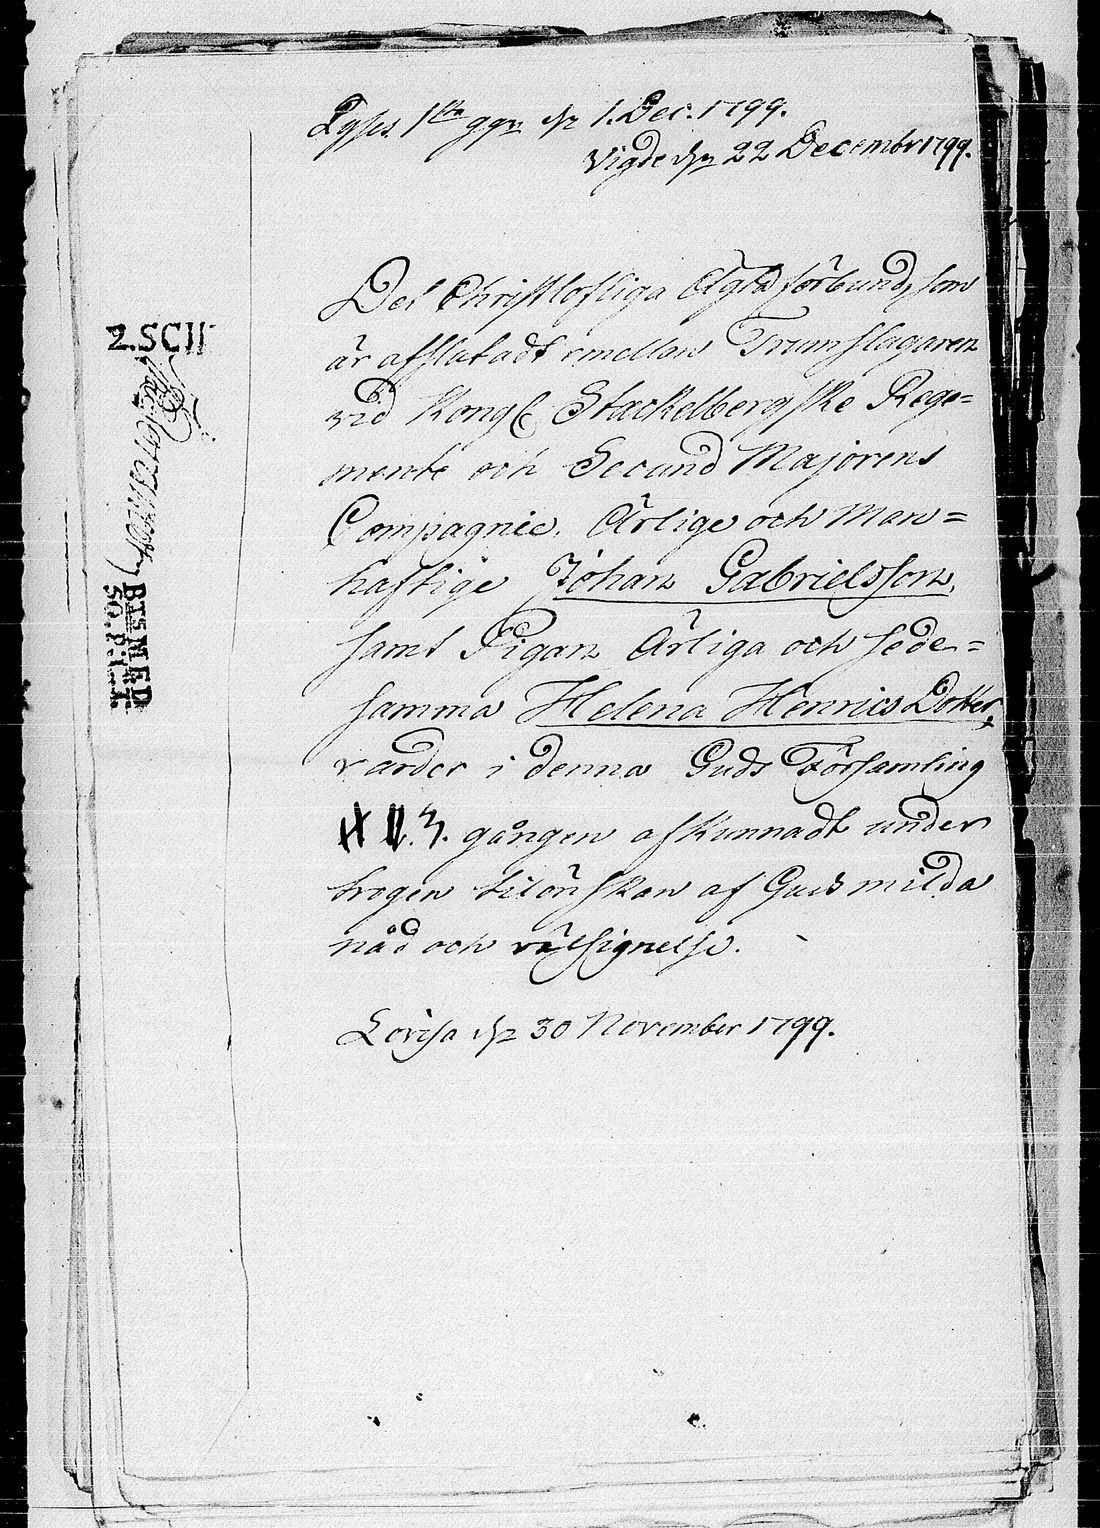 Lyses 1sta ggn den 1. Dec. 1799.
Vigde den 22 December 1799.
Det Christlofliga Ägta förbund, som
är afslutadt emellan Trumslagaren
vid Kongl. Stackelbergske Rege=
mente och Secund Majorens
Compagnie, Ärlige och Man=
haftige Johan Gabrielsson,
samt Pigan Ärliga och sede=
samma Helena Henrics Dotter,
varder i denna Guds Församling
3. gången afkunnadt under
trogen tilönskan af Guds milda
nåd och välsignelse.
Lovisa den 30 November 1799.
2. SCII